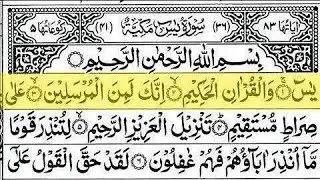 اٰیَاتُهَا ٨٣ (٣٦) سُوْرَةُ يٰسٓ مَكِّيَّةٌ (٤١) رُكُوْعَاتُهَا ٥
بِسْمِ اللّٰهِ الرَّحْمٰنِ الرَّحِيْمِ
يٰسٓ ۚ وَالْقُرْاٰنِ الْحَكِيْمِ ۙ اِنَّكَ لَمِنَ الْمُرْسَلِيْنَ ۙ عَلٰى
صِرَاطٍ مُّسْتَقِيْمٍ ؕ تَنْزِيْلَ الْعَزِيْزِ الرَّحِيْمِ ۙ لِتُنْذِرَ قَوْمًا
مَّاۤ اُنْذِرَ اٰبَآؤُهُمْ فَهُمْ غٰفِلُوْنَ ۝ لَقَدْ حَقَّ الْقَوْلُ عَلٰٓى